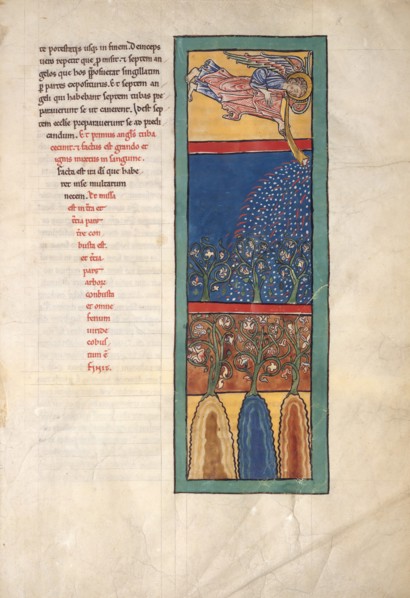 te potestatis usq; in finem. Deinceps
vero repetit que p misit et septem an
gelos quos hos pposuerat singillatim
p partes expositurus. Et septem an
geli qui habebant septem tubas pre
paraverunt se ut canerent. Id est sep
tem eccle preparaverunt se ad predi
candum. Et primus angls tuba
cecinit. et factus est grando et
ignis mixtus in sanguine.
facta est ira di que habe
ret in se multorum
necem. Et missa
est in tra et
tcia pars
tre con
busta est.
et tcia.
pars
arbor
conbusta
et omne
fenum
viride
cobus
tum e
finis.